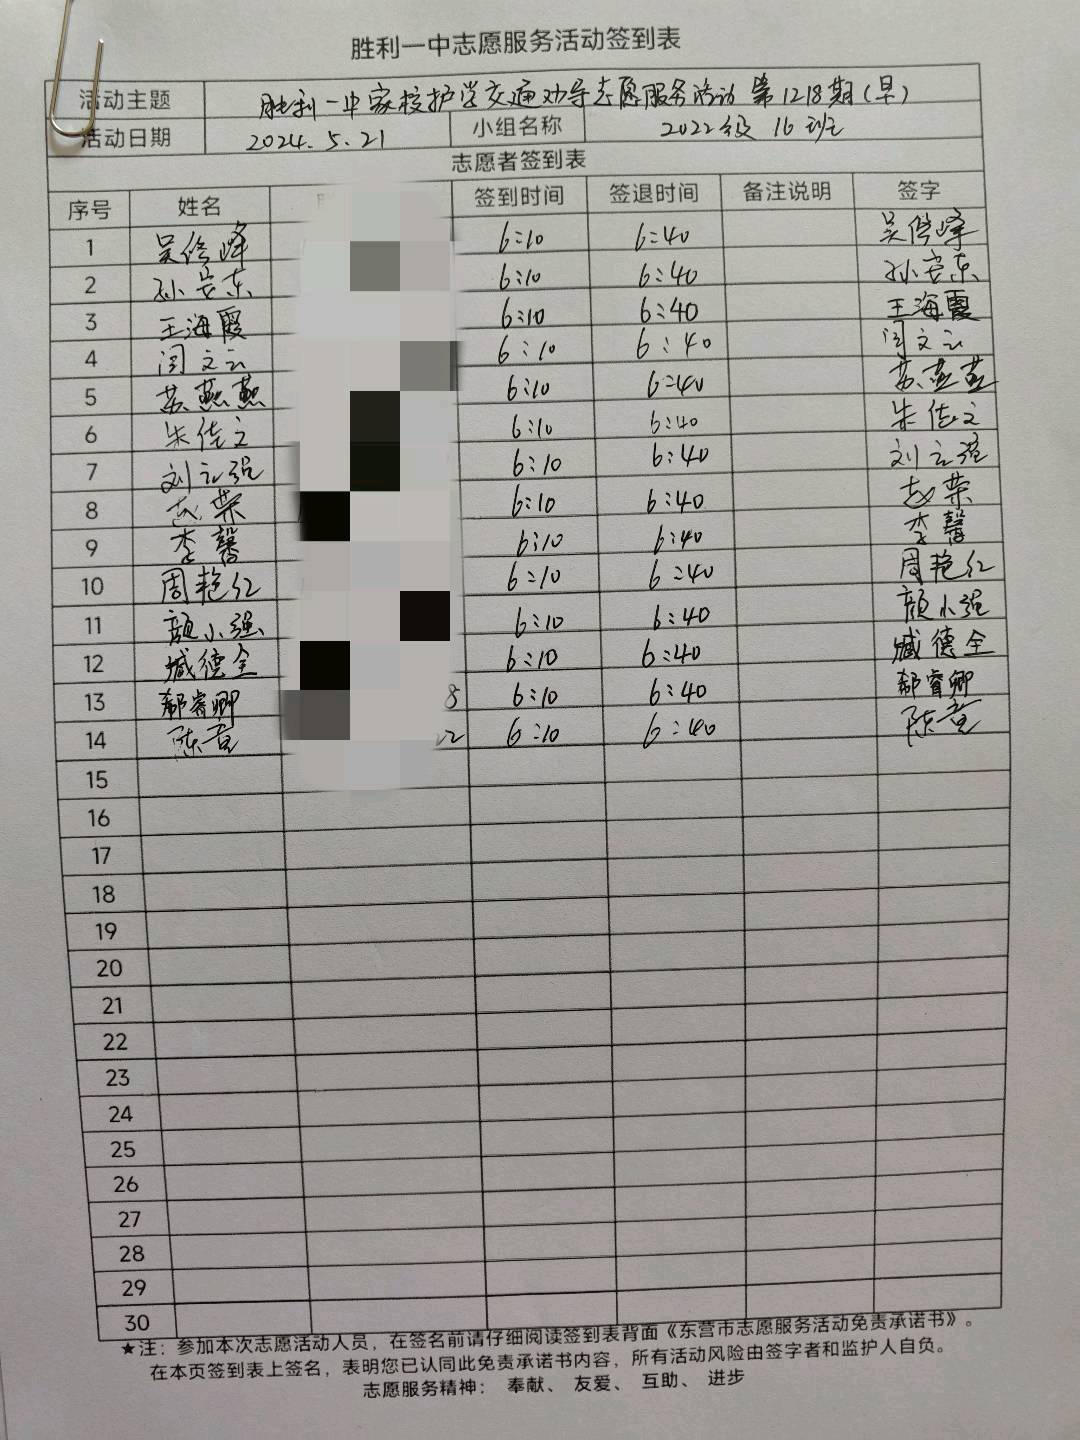 胜利一中志愿服务活动签到表
活动主题 胜利一中家校护学交通劝导志愿服务活动 第1218期(早)
活动日期 2024.5.21 小组名称 2022级 16班
志愿者签到表
序号 姓名 签到时间 签退时间 备注说明 签字
1 吴俊峰 6:10 6:40 吴俊峰
2 孙安东 6:10 6:40 孙安东
3 王海霞 6:10 6:40 王海霞
4 闫文云 6:10 6:40 闫文云
5 苏燕燕 6:10 6:40 苏燕燕
6 朱佳文 6:10 6:40 朱佳文
7 刘云强 6:10 6:40 刘云强
8 赵荣 6:10 6:40 赵荣
9 李馨 6:10 6:40 李馨
10 周艳红 6:10 6:40 周艳红
11 颜小强 6:10 6:40 颜小强
12 臧德全 6:10 6:40 臧德全
13 郝睿卿 8 6:10 6:40 郝睿卿
14 陈童 2 6:10 6:40 陈童
15
16
17
18
19
20
21
22
23
24
25
26
27
28
29
30
★注：参加本次志愿活动人员，在签名前请仔细阅读签到表背面《东营市志愿服务活动免责承诺书》。
在本页签到表上签名，表明您已认同此免责承诺书内容，所有活动风险由签字者和监护人自负。
志愿服务精神： 奉献、 友爱、 互助、 进步